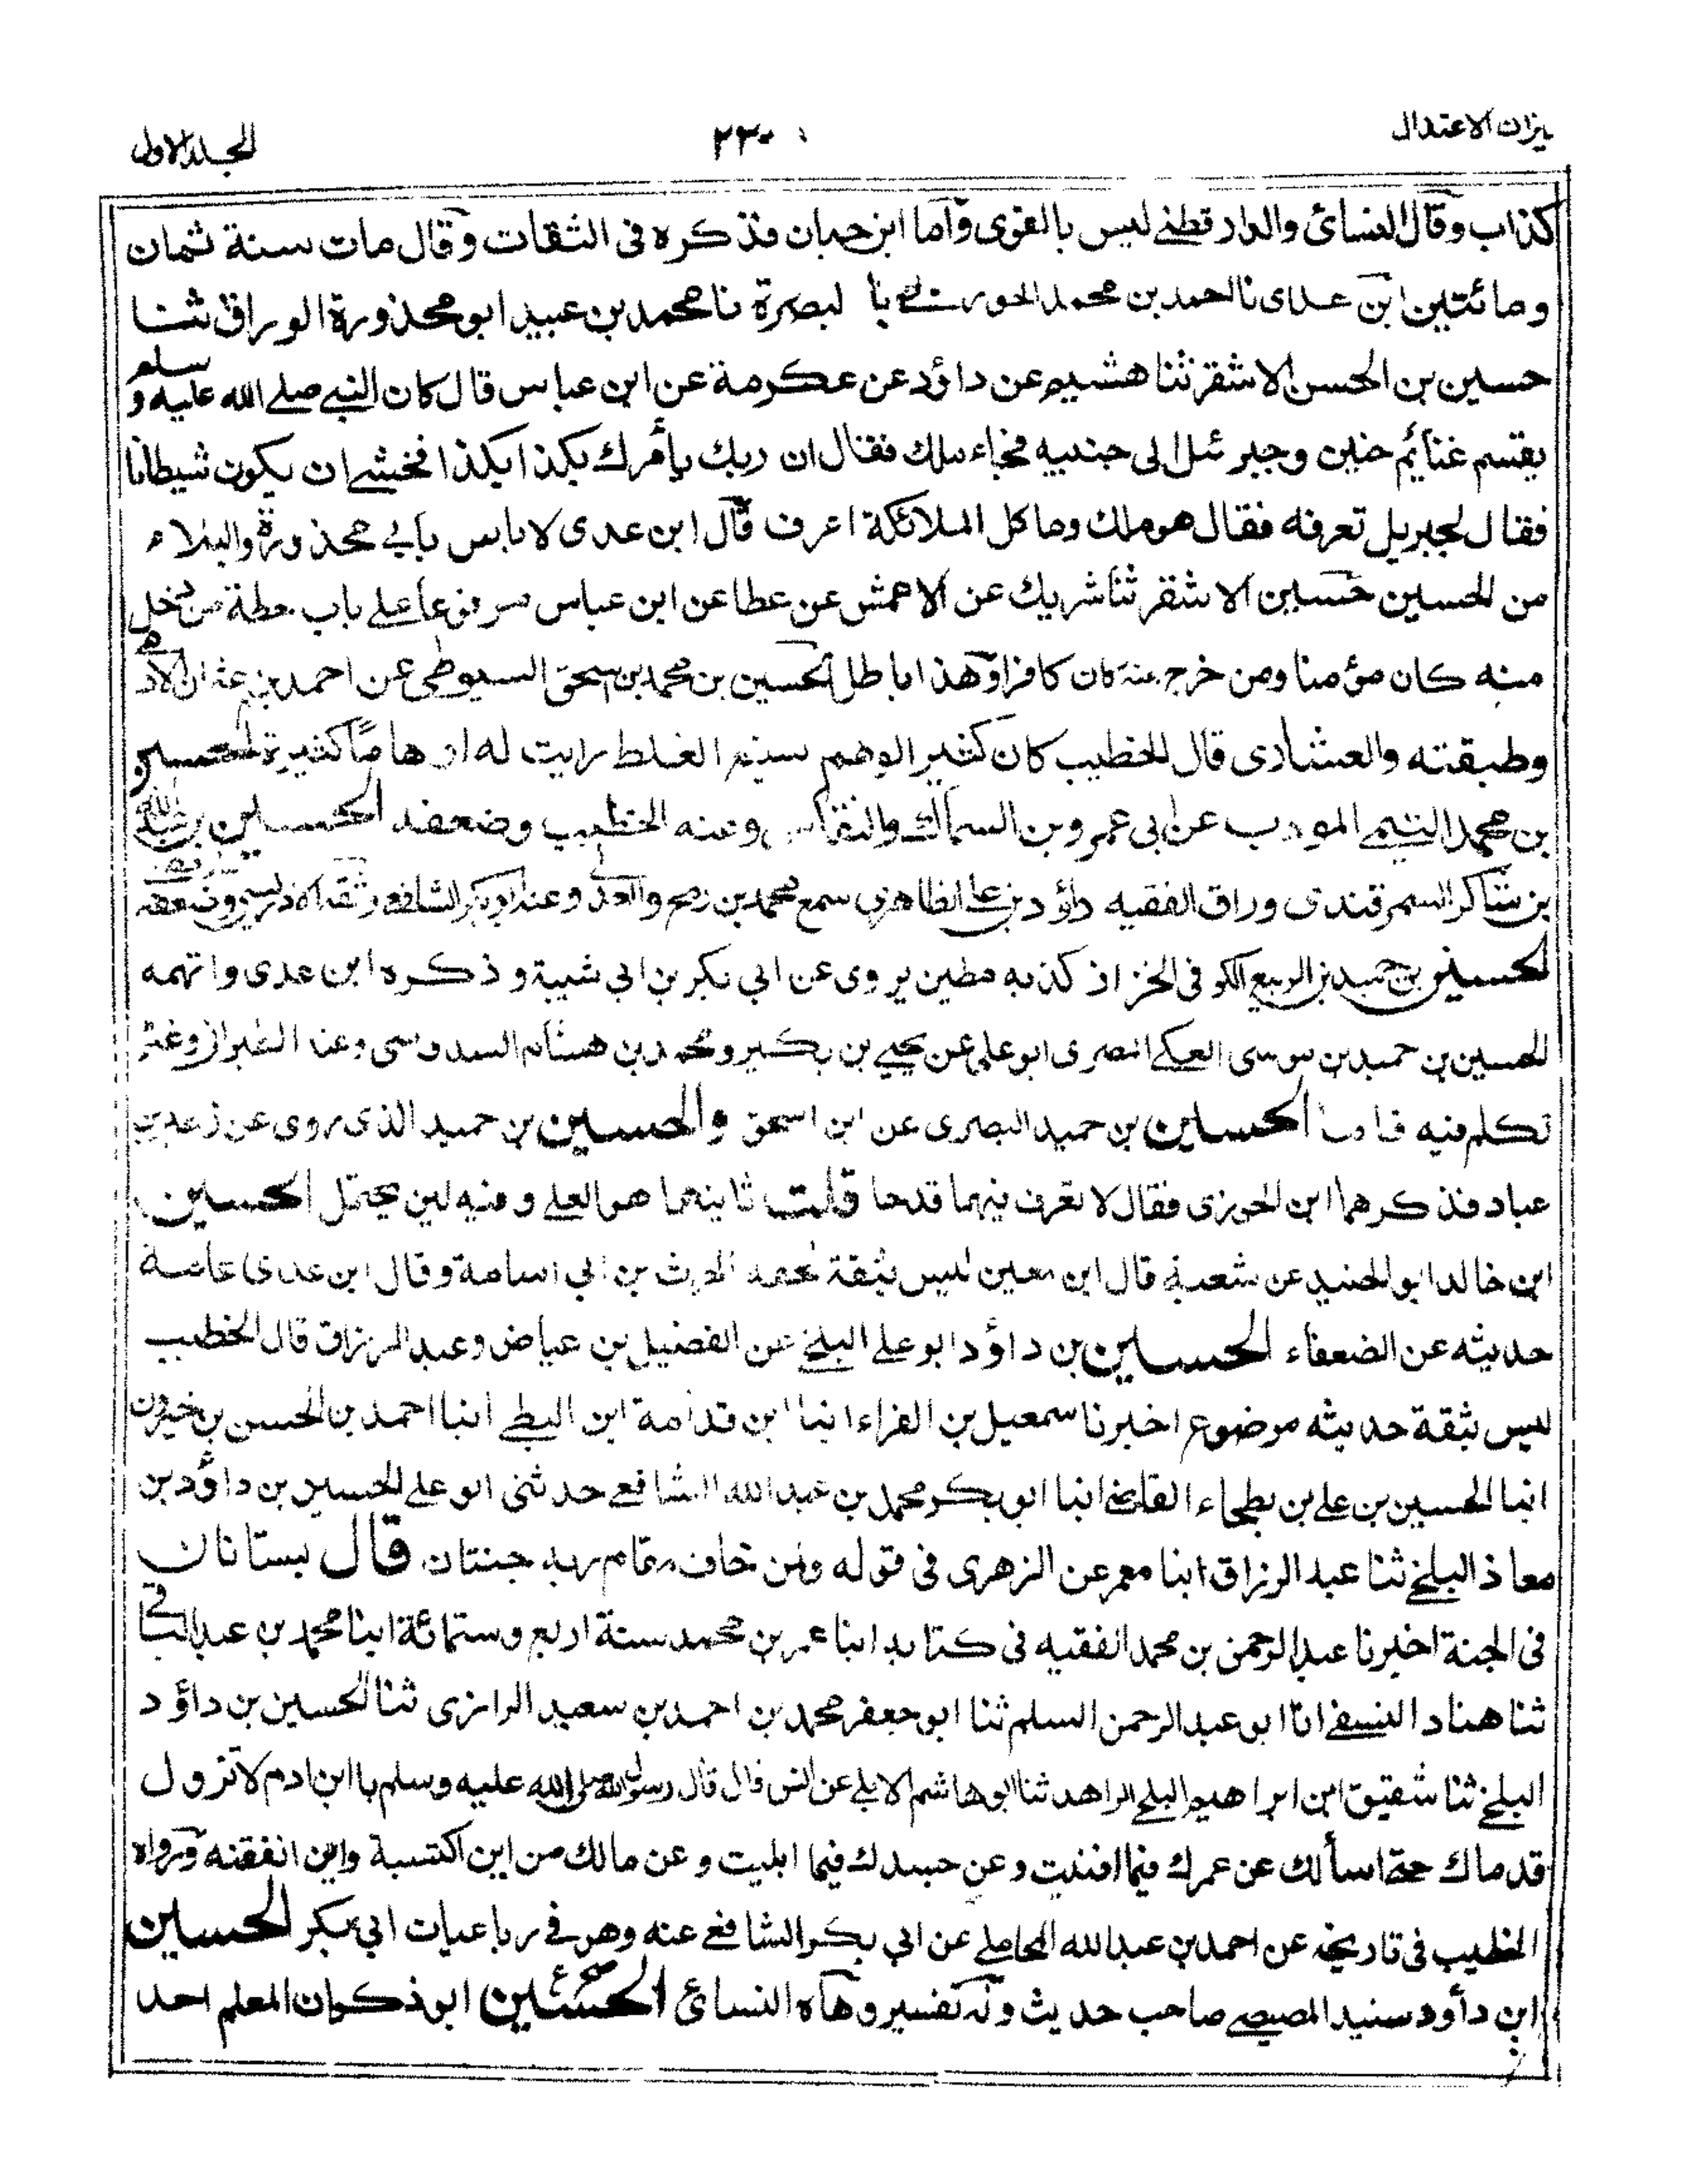 يزان الاعتدال
٢٣٠
الجلد الاول
كذاب وقال النسائ والدارقطنے ليس بالقوى وآما ابن حبان فذكره فى الثقات وقال مات سنة ثمان
ومائتين ابن عدى نا احمد بن محمد با لبصرة نا محمد بن عبيد ابو محذورة الوراق ثنا
حسين بن الحسن الاشقر ثنا هشيم عن داؤد عن عكرمة عن ابن عباس قال كان النبے صلے الله عليه و سلم
يقسم غنائم حنين وجبرئيل الى جنبه فجاء ملك فقال ان ربك يأمرك بكذا بكذا فخشے ان يكون شيطانا
فقال لجبريل تعرفه فقال هو ملك وما كل الملائكة اعرف قآل ابن عدى لا باس بابے محذورة والبلاء
من الحسين حسين الاشقر ثنا شريك عن الاعمش عن عطا عن ابن عباس مرفوعا علے باب حطة من دخل
منه كان مؤمنا ومن خرج منه كان كافرا وهذا باطل الحسين بن محمد بن اسحق السيوطى عن احمد بن عثمان الادمى
وطبقته والعشارى قال الخطيب كان كثير الوهم سنيع الغلط رايت له اوهاما كثيرة الحسين
بن محمد التيمے المودب عن ابى عمرو بن السماك والنقاش وعنه الخطيب وضعفه الحسين بن عبدالله
بن شاكر السمرقندى وراق الفقيه داؤد بن على الظاهرى سمع محمد بن رمح والعدنى وعنه ابو بكر الشافعے وثقه الادريسى وضعفه
الحسين بن حميد بن الربيع الكوفى الخزاز كذبه مطين يروى عن ابى بكر بن ابى شيبة وذكره ابن عدى واتهمه
الحسين بن حميد بن موسى العكے المصرى ابو على عن يحيے بن بكير ومحمد بن هشام السدوسى وعنه الطبرانى وغيره
تكلم فيه فاما الحسين بن حميد البصرى عن ابن اسحق والحسين بن حميد الذى روى عن زهدبن
عباد فذكرهما ابن الجوزى فقال لا نعرف فيهما قدحا قلت ثانيهما هو العلے وفيه لين يحتمل الحسين
ابن خالد ابو الجنيد عن شعبة قال ابن معين ليس بثقة لحقه الحرث بن ابى اسامة وقال ابن عدى عامة
حديثه عن الضعفاء الحسين بن داؤد ابو علے البلخے عن الفضيل بن عياض وعبد الرزاق قال الخطيب
ليس بثقة حديثه موضوع اخبرنا اسمعيل بن الفراء انبا ابن قدامة ابن البطے انبا احمد بن الحسن بن خيرون
انبا الحسين بن علے بن بطحاء القاضے انبا ابو بكر محمد بن عبد الله الشافعے حدثنى ابو علے الحسين بن داؤد بن
معاذ البلخے ثنا عبد الرزاق انبا معمر عن الزهرى فى قوله ومن خاف مقام ربه جنتان قال بستانان
فى الجنة اخبرنا عبد الرحمن بن محمد الفقيه فى كتابه انبا عمر بن محمد سنة اربع وستمائة انبا محمد بن عبد الباقى
ثنا هناد النسفے انا ابو عبد الرحمن السلم ثنا ابو جعفر محمد بن احمد بن سعيد الرازى ثنا الحسين بن داؤد
البلخے ثنا شقيق ابن ابراهيم البلخے الزاهد ثنا ابو هاشم الابلے عن انس قال قال رسول الله صلى الله عليه وسلم يا ابن ادم لا تزول
قدماك حتے اسألك عن عمرك فيما افنيت وعن جسدك فيما ابليت وعن مالك من اين اكتسبة واين انفقته ورواه
الخطيب فى تاريخه عن احمد بن عبد الله المحاملے عن ابى بكر الشافعے عنه وهو فے رباعيات ابى بكر الحسين
ابن دأود سنيد المصيصے صاحب حديث وله تفسير وهاه النسائ الحسين ابن ذكوان المعلم احد